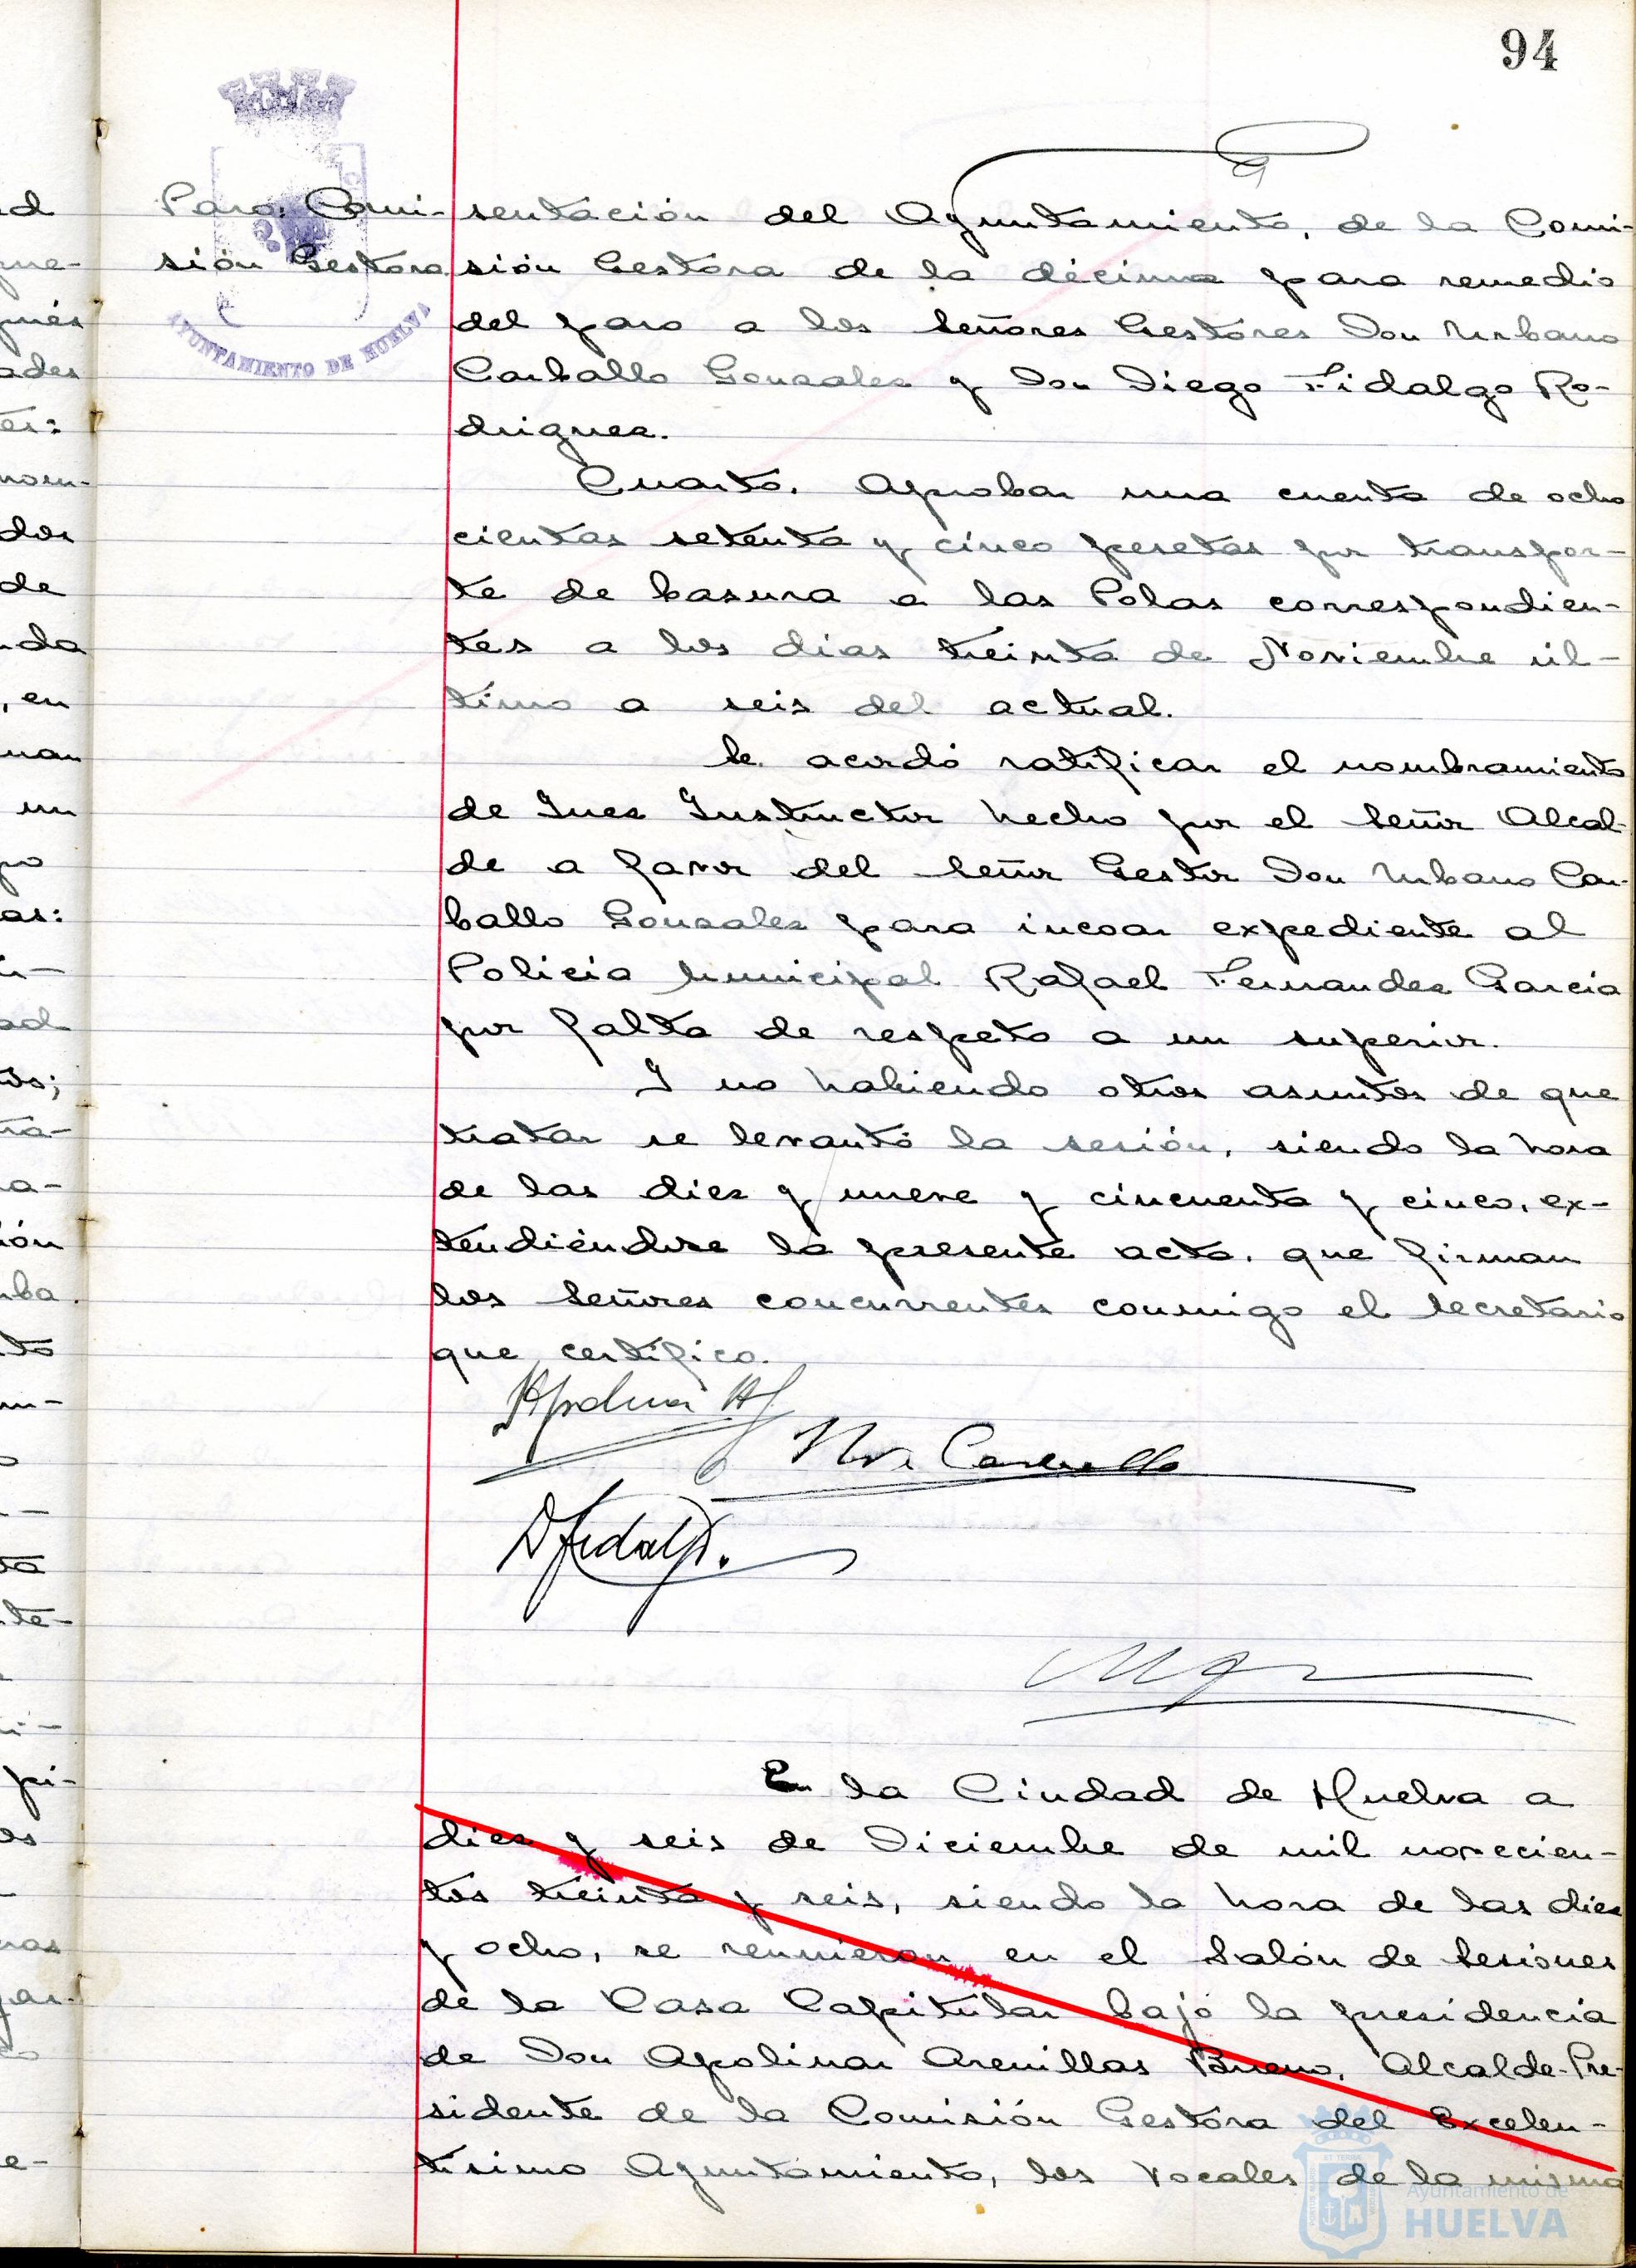 94
Paro. Comi-
sión Gestora
AYUNTAMIENTO DE HUELVA
sentación del Ayuntamiento, de la Comi-
sión Gestora de la décima para remedio
del paro a los Señores Gestores Don Urbano
Carballo Gonzalez y Don Diego Fidalgo Ro-
driguez.
Cuarto. Aprobar una cuenta de ocho
cientas setenta y cinco pesetas por transpor-
te de basura a las Polas correspondien-
tes a los dias treinta de Noviembre úl-
timo a seis del actual.
Se acordó ratificar el nombramiento
de Juez Instructor hecho por el Señor Alcal-
de a favor del Señor Gestor Don Urbano Car-
ballo Gonzalez para incoar expediente al
Policia Municipal Rafael Fernandez Garcia
por falta de respeto a un superior.
Y no habiendo otros asuntos de que
tratar se levantó la sesión, siendo la hora
de las diez y nueve y cincuenta y cinco, ex-
tendiéndose la presente acta, que firman
los Señores concurrentes conmigo el Secretario
que certifico.
Carballo
D Fidalgo.
En la Ciudad de Huelva a
diez y seis de Diciembre de mil novecien-
tos treinta y seis, siendo la hora de las diez
y ocho, se reunieron en el Salón de Sesiones
de la Casa Capitular bajo la presidencia
de Don Apolinar Arenillas Bueno, Alcalde-Pre-
sidente de la Comisión Gestora del Excelen-
tísimo Ayuntamiento, los Vocales de la misma
Ayuntamiento de
HUELVA